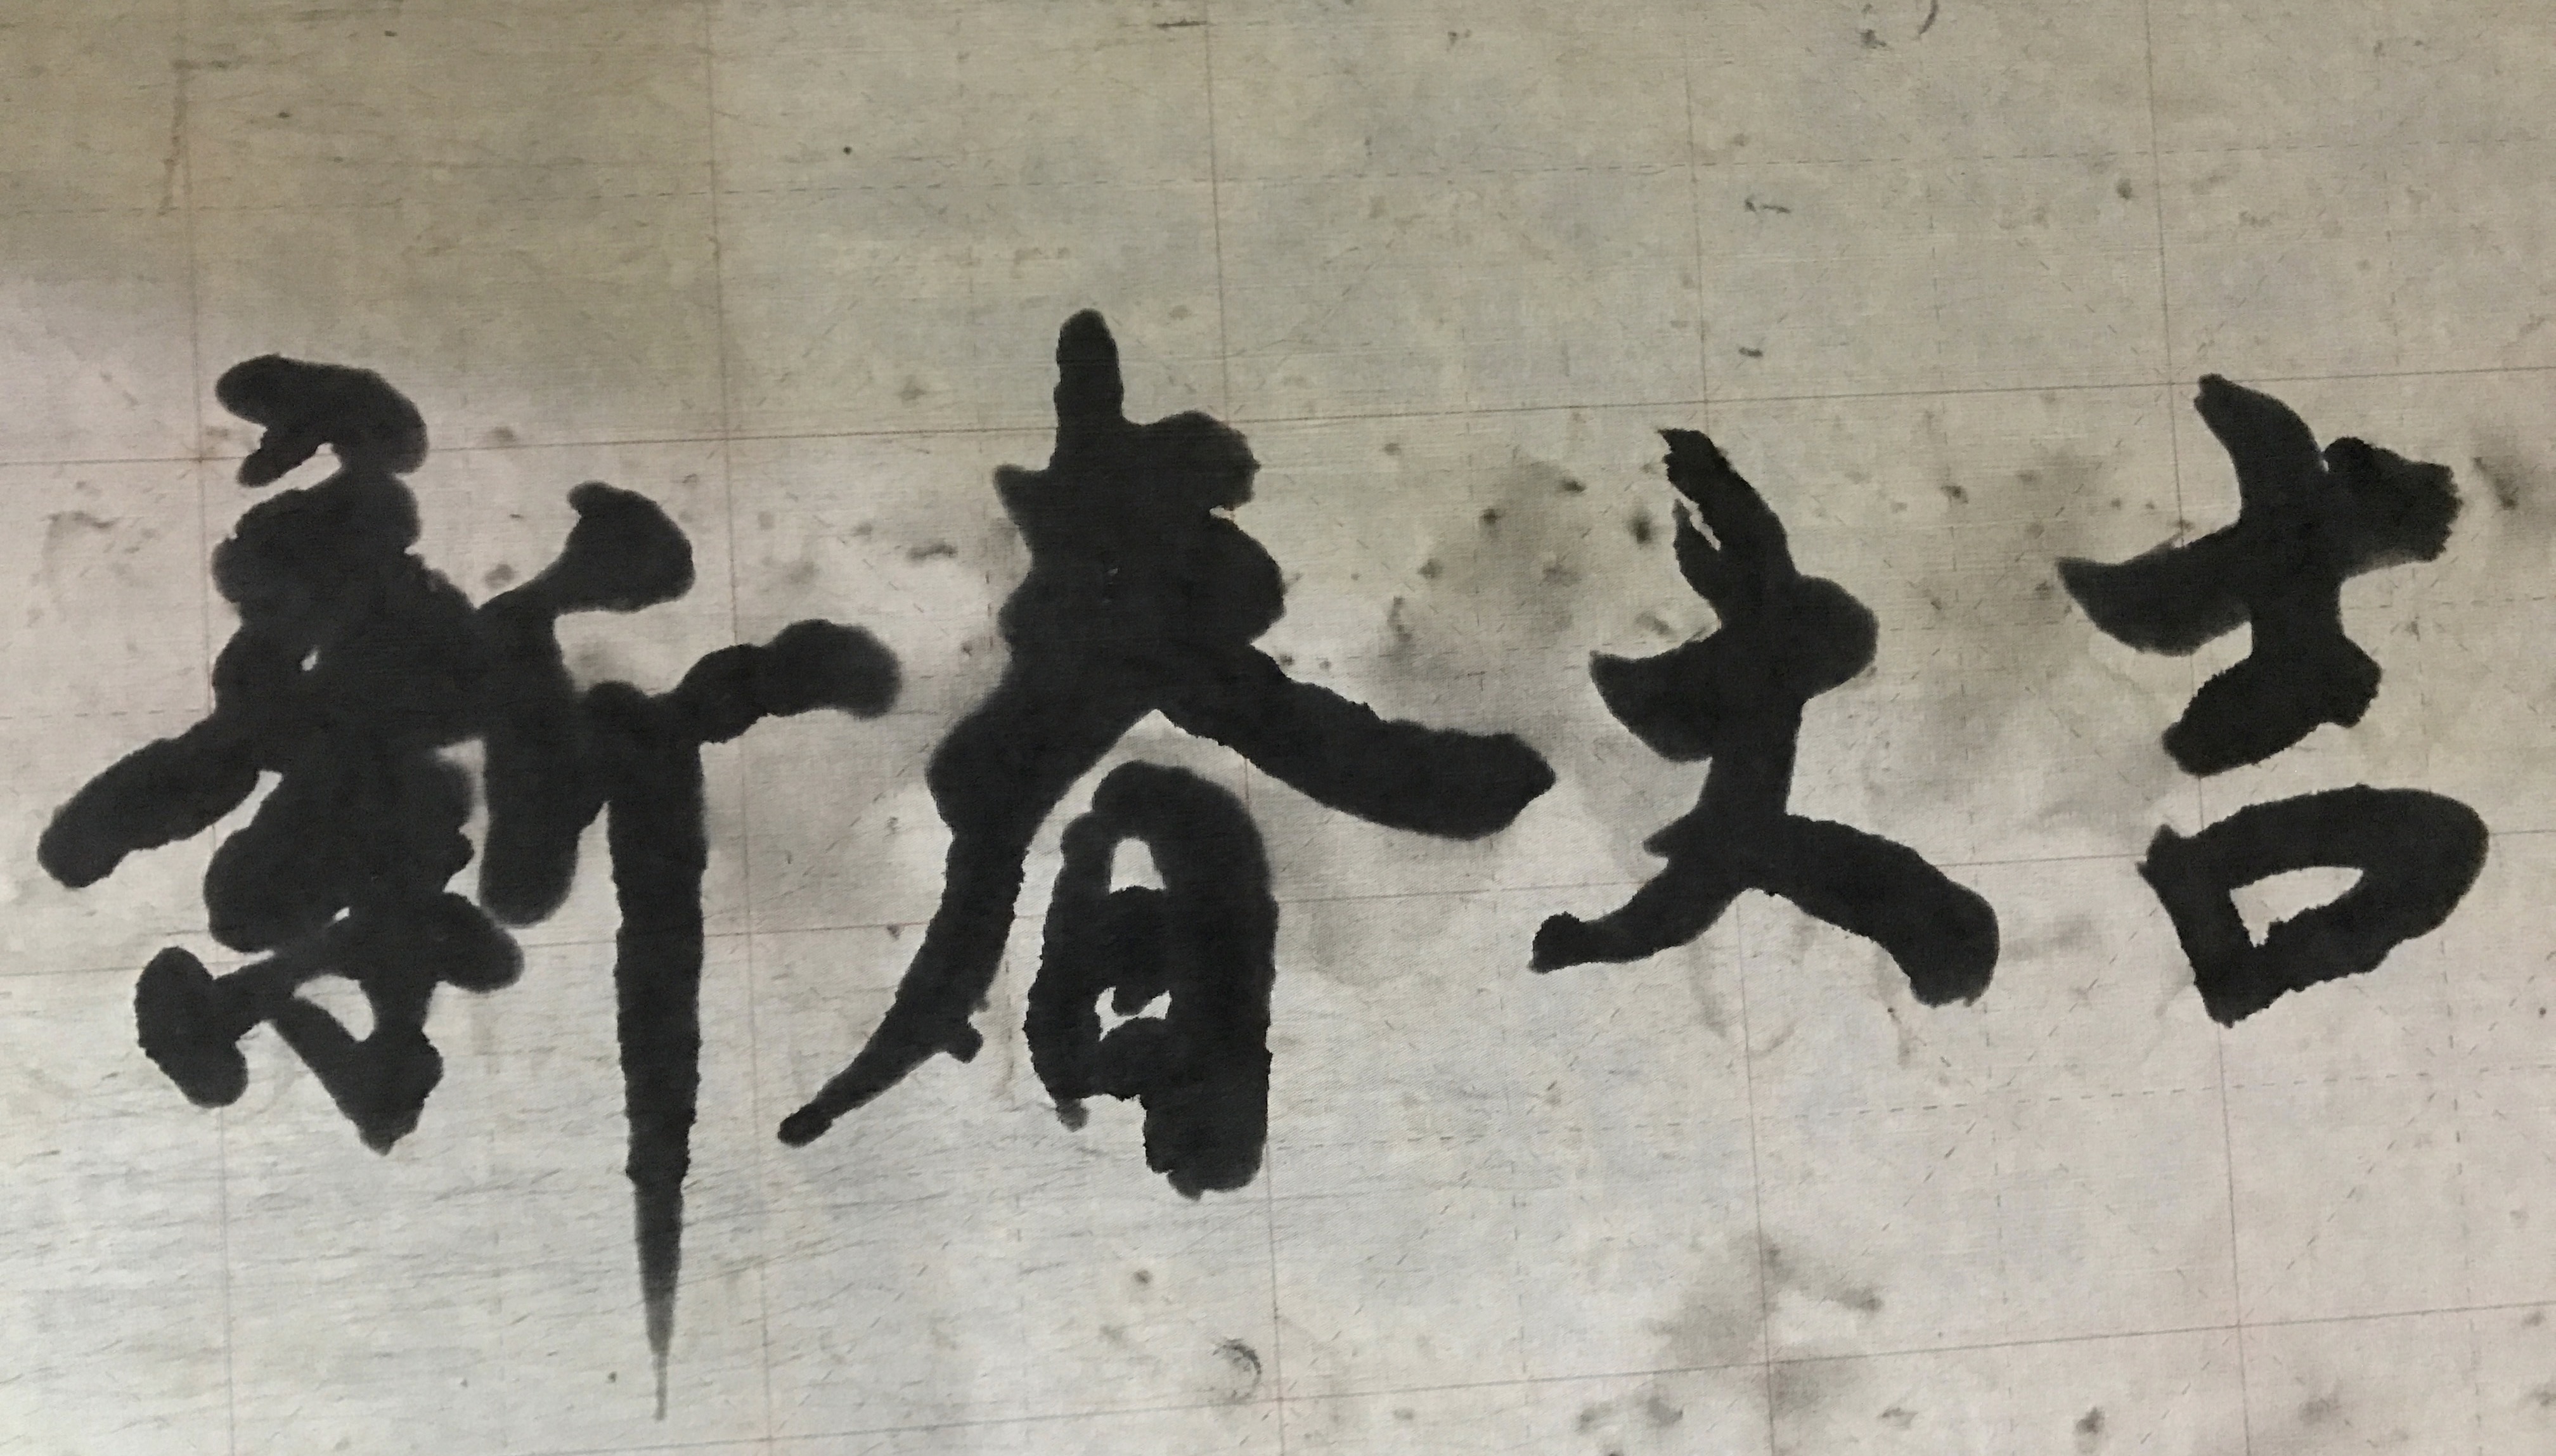 新春大吉